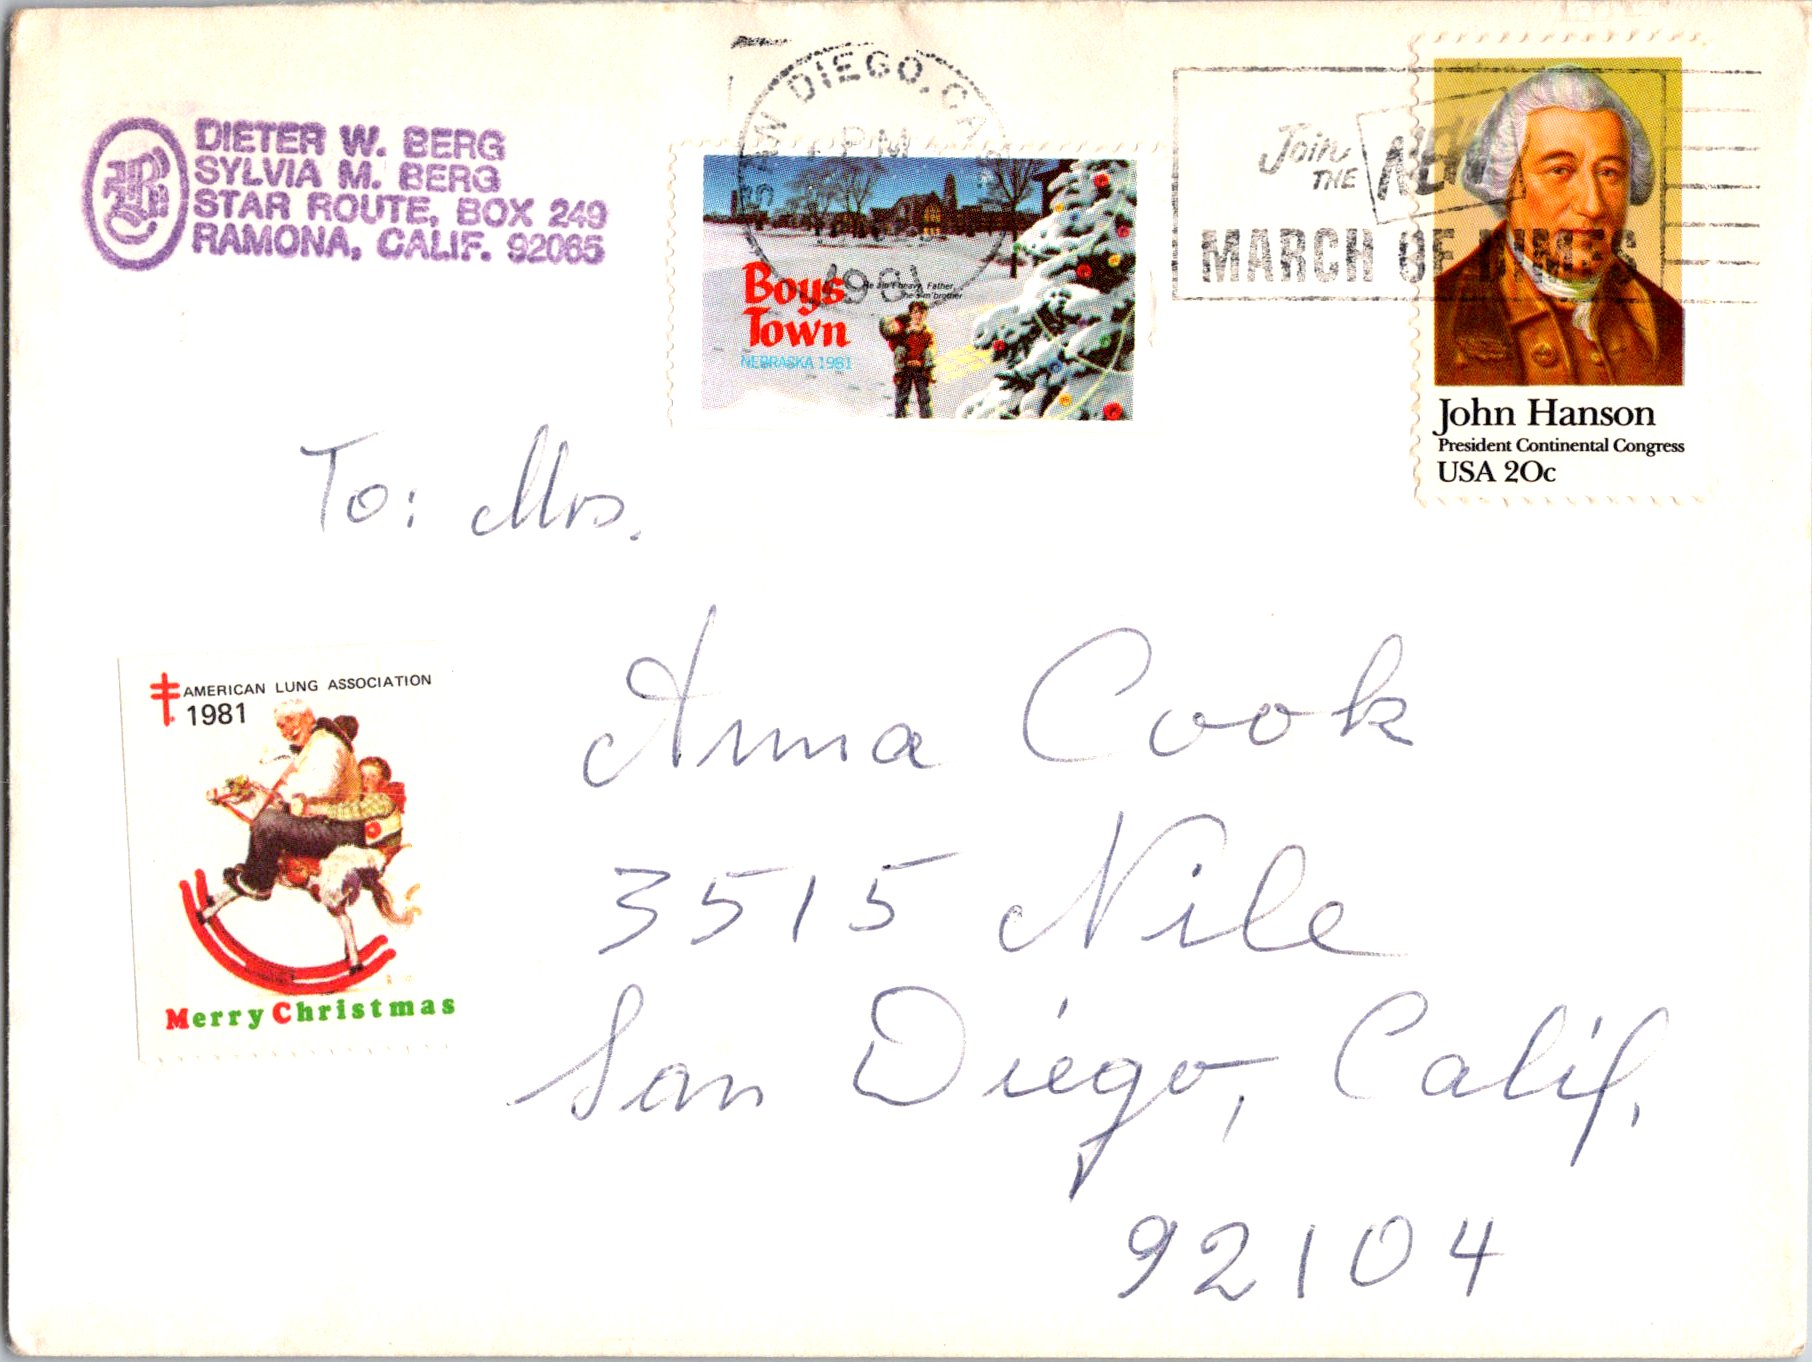 DIETER W. BERG
SYLVIA M. BERG
STAR ROUTE, BOX 249
RAMONA, CALIF. 92065
B
SAN DIEGO, CA
PM
1981
Boys
Town
He ain't heavy, Father,
he's m' brother
NEBRASKA 1981
Join
THE NEW
MARCH OF DIMES
John Hanson
President Continental Congress
USA 20c
To: Mrs.
Anna Cook
3515 Nile
San Diego, Calif.
92104
AMERICAN LUNG ASSOCIATION
1981
Merry Christmas